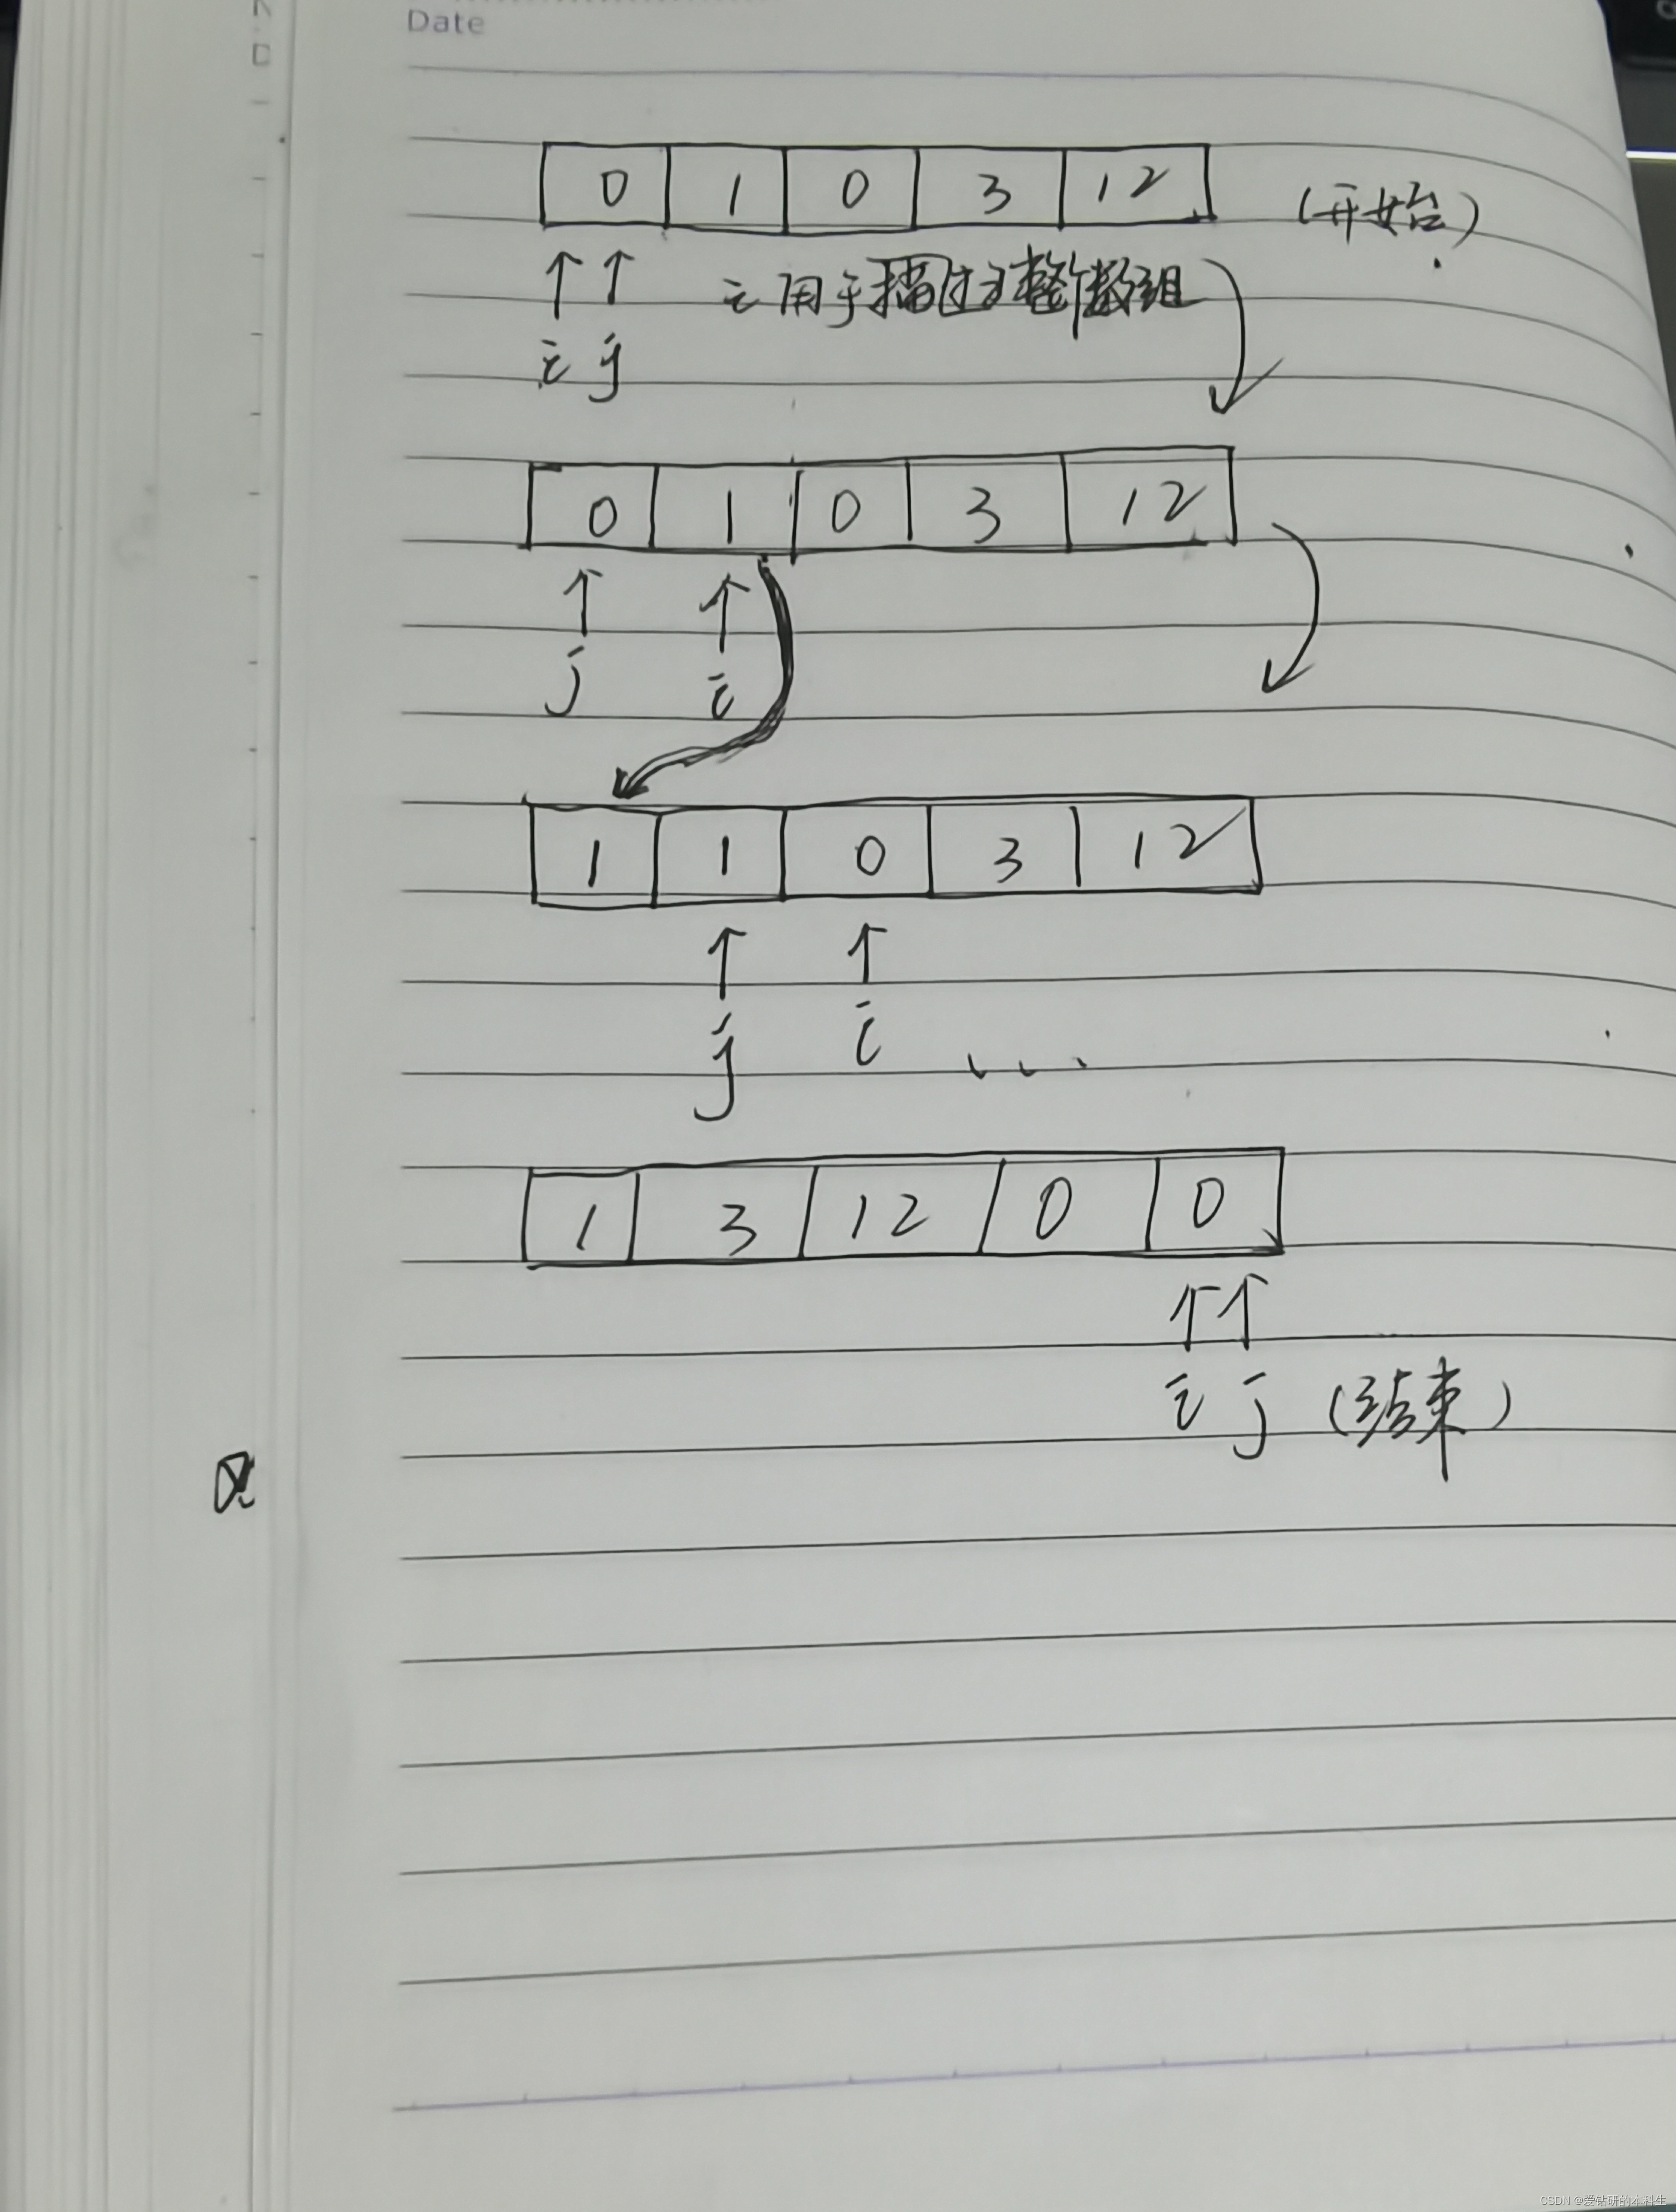 Date
0 1 0 3 12 (开始)
i用于指过整个数组
i j
0 1 0 3 12
j i
1 1 0 3 12
j i ...
1 3 12 0 0
i j (结束)
CSDN @爱钻研的本科生